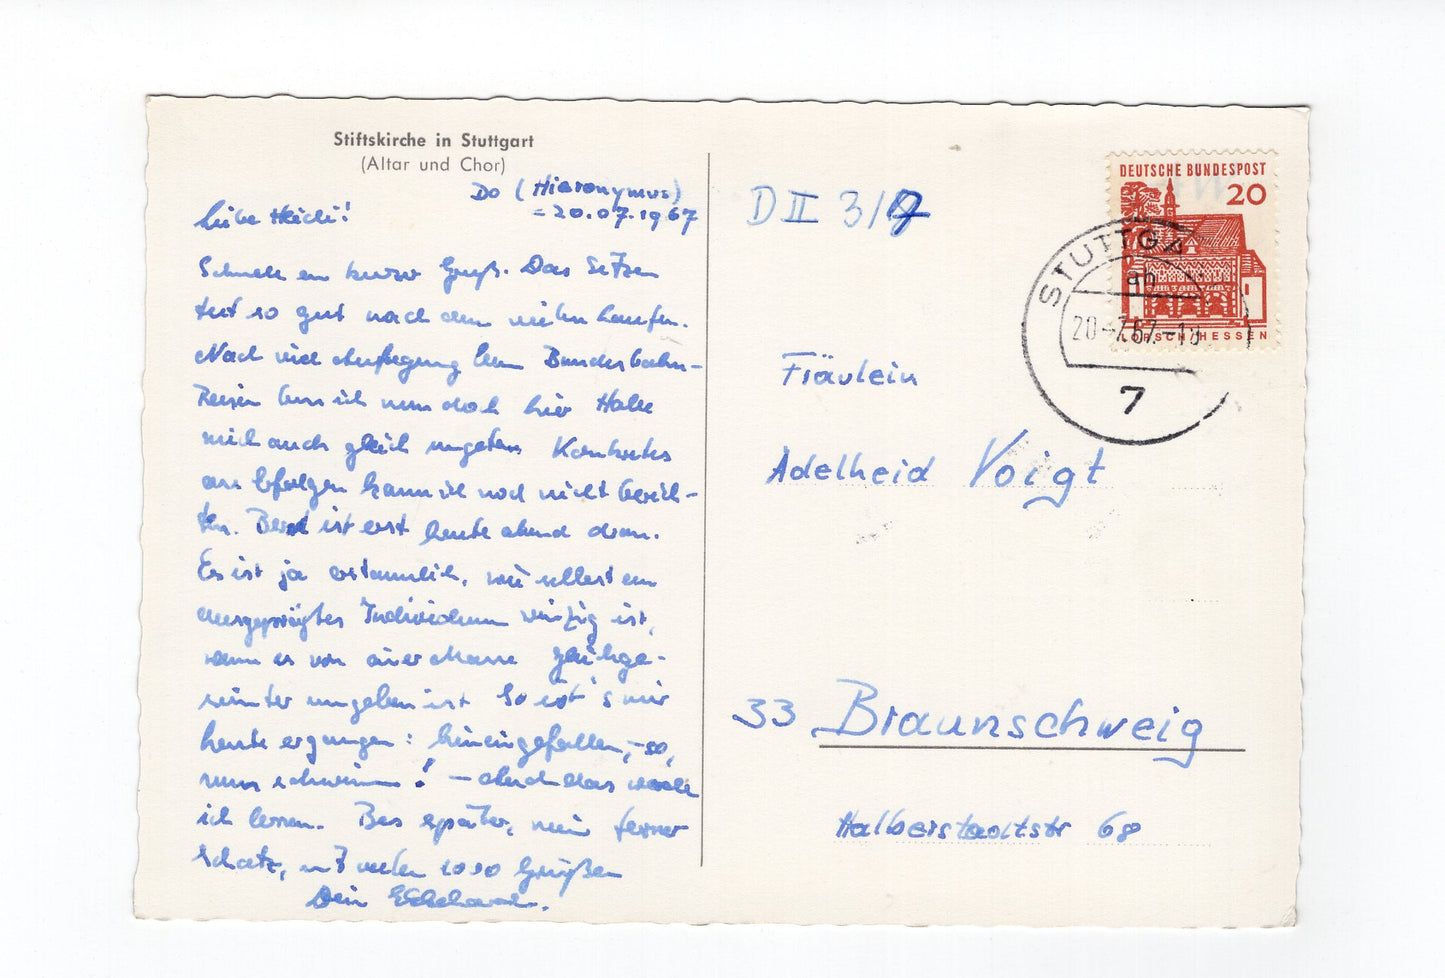 Stiftskirche in Stuttgart
(Altar und Chor)
Do (Hieronymus)
= 20.07.1967
Liebe Heidi!
Schnell ein kurzer Gruß. Das Sitzen
tut so gut nach dem vielen Laufen.
Nach viel Aufregung beim Bundesbahn-
Reisen bin ich nun doch hier. Habe
mich auch gleich Konkretes
an Erfolgen kann ich noch nicht berich-
ten. Bernd ist erst heute abend dran.
Es ist ja erstaunlich, wie selbst ein
ausgeprägtes Individuum winzig ist,
wenn es von einer Masse gleichge-
sinnter umgeben ist. So ist's mir
heute ergangen: hineingefallen, – so,
nun schwimm! – auch das werde
ich lernen. Bis später, mein ferner
Schatz, mit vielen 1000 Grüßen
Dein Ekkehard.
D II 3/
DEUTSCHE BUNDESPOST
20
LORSCH/HESSEN
STUTTGA
ah
20.-7.67.-18
7
Fräulein
Adelheid Voigt
33 Braunschweig
Halberstadtstr 68